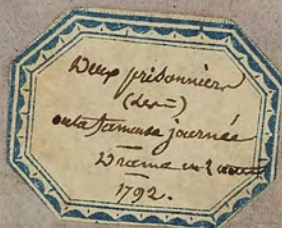 Deux prisonniers
(Les =)
ou la fameuse journée
Drame en 2 actes
1792.